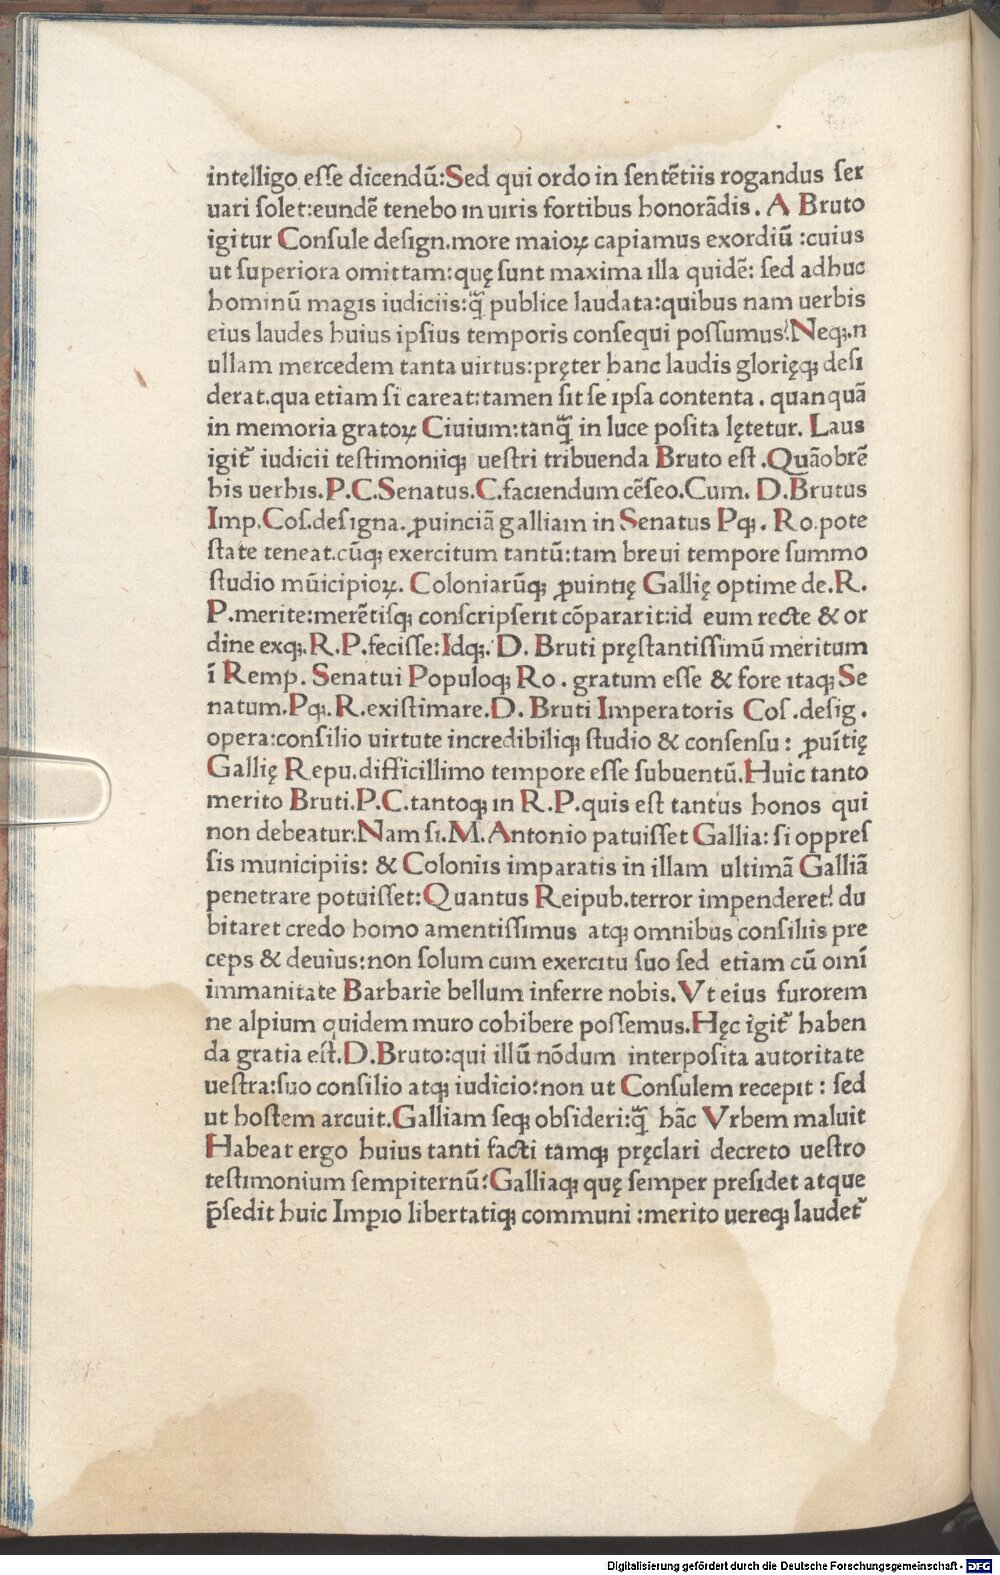 intelligo esse dicendū:Sed qui ordo in sentētiis rogandus ser
uari solet:eundē tenebo in uiris fortibus honorādis. A Bruto
igitur Consule design.more maioꝝ capiamus exordiū :cuius
ut superiora omittam:quę sunt maxima illa quidē: sed adhuc
hominū magis iudiciis:q̃ publice laudata:quibus nam uerbis
eius laudes huius ipsius temporis consequi possumus?Neqꝫ.n
ullam mercedem tanta uirtus:pręter hanc laudis glorięqꝫ desi
derat.qua etiam si careat:tamen sit se ipsa contenta. quanquā
in memoria gratoꝝ Ciuium:tanq̃ in luce posita lętetur. Laus
igit᷑ iudicii testimoniiqꝫ uestri tribuenda Bruto est.Quāobrē
his uerbis.P.C.Senatus.C.faciendum cēseo.Cum. D.Brutus
Imp.Cos.designa.ꝓuinciā galliam in Senatus Pqꝫ. Ro.pote
state teneat.cūqꝫ exercitum tantū:tam breui tempore summo
studio mūicipioꝝ. Coloniarūqꝫ ꝓuintię Gallię optime de.R.
P.merite:merētisqꝫ conscripserit cōpararit:id eum recte & or
dine exqꝫ.R.P.fecisse:Idqꝫ. D. Bruti pręstantissimū meritum
ī Remp. Senatui Populoqꝫ Ro. gratum esse & fore itaqꝫ Se
natum.Pqꝫ.R.existimare.D. Bruti Imperatoris Cos.desig.
opera:consilio uirtute incredibiliqꝫ studio & consensu: ꝓuītię
Gallię Repu.difficillimo tempore esse subuentū.Huic tanto
merito Bruti.P.C.tantoqꝫ in R.P.quis est tantus honos qui
non debeatur.Nam si.M.Antonio patuisset Gallia: si oppres
sis municipiis: & Coloniis imparatis in illam ultimā Galliā
penetrare potuisset:Quantus Reipub.terror impenderet? du
bitaret credo homo amentissimus atqꝫ omnibus consiliis pre
ceps & deuius:non solum cum exercitu suo sed etiam cū omī
immanitate Barbarie bellum inferre nobis.Vt eius furorem
ne alpium quidem muro cohibere possemus.Hęc igit᷑ haben
da gratia est.D.Bruto:qui illū nōdum interposita autoritate
uestra:suo consilio atqꝫ iudicio:non ut Consulem recepit: sed
ut hostem arcuit.Galliam seqꝫ obsideri:q̃ hāc Vrbem maluit
Habeat ergo huius tanti facti tamqꝫ pręclari decreto uestro
testimonium sempiternū:Galliaqꝫ quę semper presidet atque
p̄sedit huic Imꝑio libertatiqꝫ communi :merito uereqꝫ laudet᷑
Digitalisierung gefördert durch die Deutsche Forschungsgemeinschaft - DFG